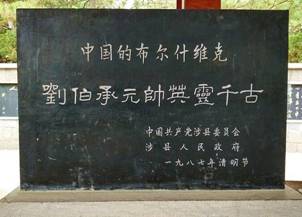 中国的布尔什维克
劉伯承元帥英靈千古
中国共产党涉县委员会
涉县人民政府
一九八七年清明节